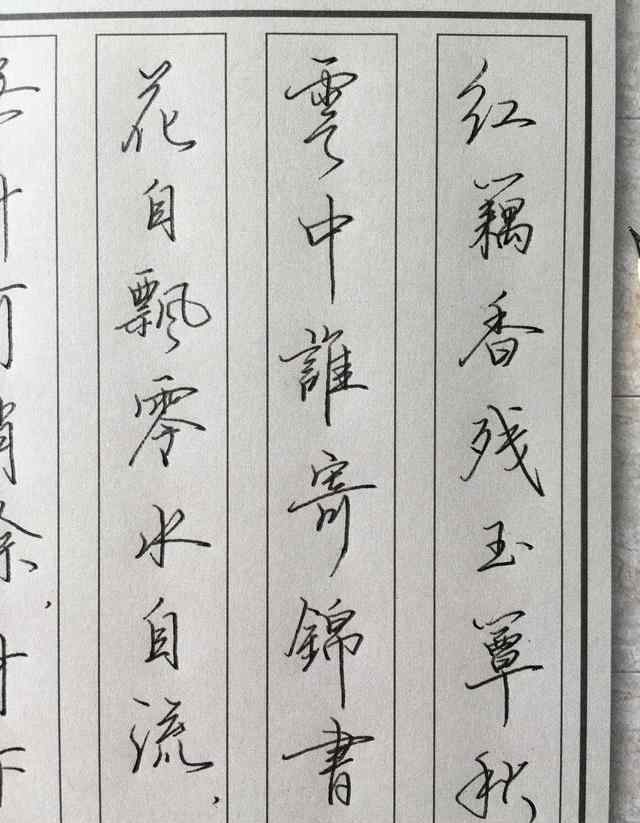 红藕香残玉簟秋
雲中誰寄錦書
花自飄零水自流，